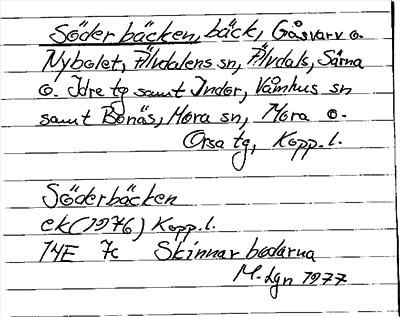 Söderbäcken, bäck, Gåsvarv o.
Nybolet, Älvdalens sn, Älvdals, Särna
o. Idre tg samt Indor, Våmhus sn
samt Bonäs, Mora sn, Mora o.
Orsa tg, Kopp.l.
Söderbäcken
ek (1976) Kopp.l.
14E 7c Skinnarbodarna
M. Lgn 1977